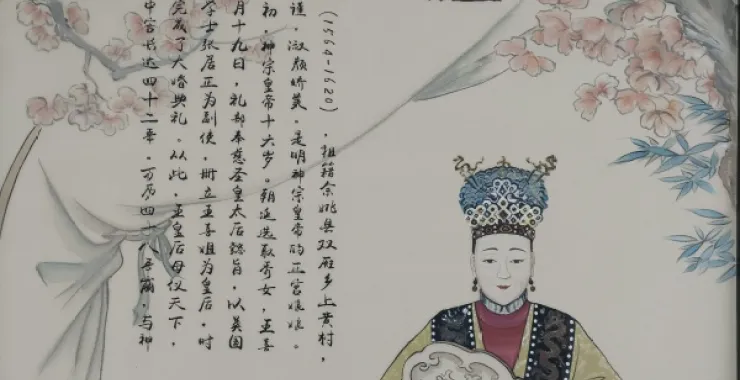 (1564-1620)，祖籍余姚县双雁乡上黄村，
谨，淑颜娇美。是明神宗皇帝的正宫娘娘。
初，神宗皇帝十六岁。朝廷选取秀女，王喜
月十九日，礼部奉慈圣皇太后懿旨，以英国
学士张居正为副使，册立王喜姐为皇后，时
完成了大婚典礼。从此，王皇后母仪天下，
中宫长达四十二年。万历四十八年崩，与神